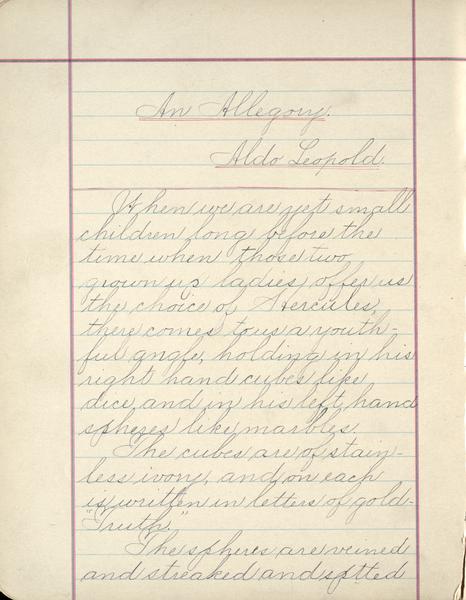 An Allegory.
Aldo Leopold.
When we are yet small
children long before the
time when those two
grown up ladies offer us
the choice of Hercules,
there comes to us a youth-
ful angle, holding in his
right hand cubes like
dice, and in his left hand
spheres like marbles.
The cubes are of stain-
less ivory, and on each
is written in letters of gold-
"Truth."
The spheres are veined
and streaked and sptted